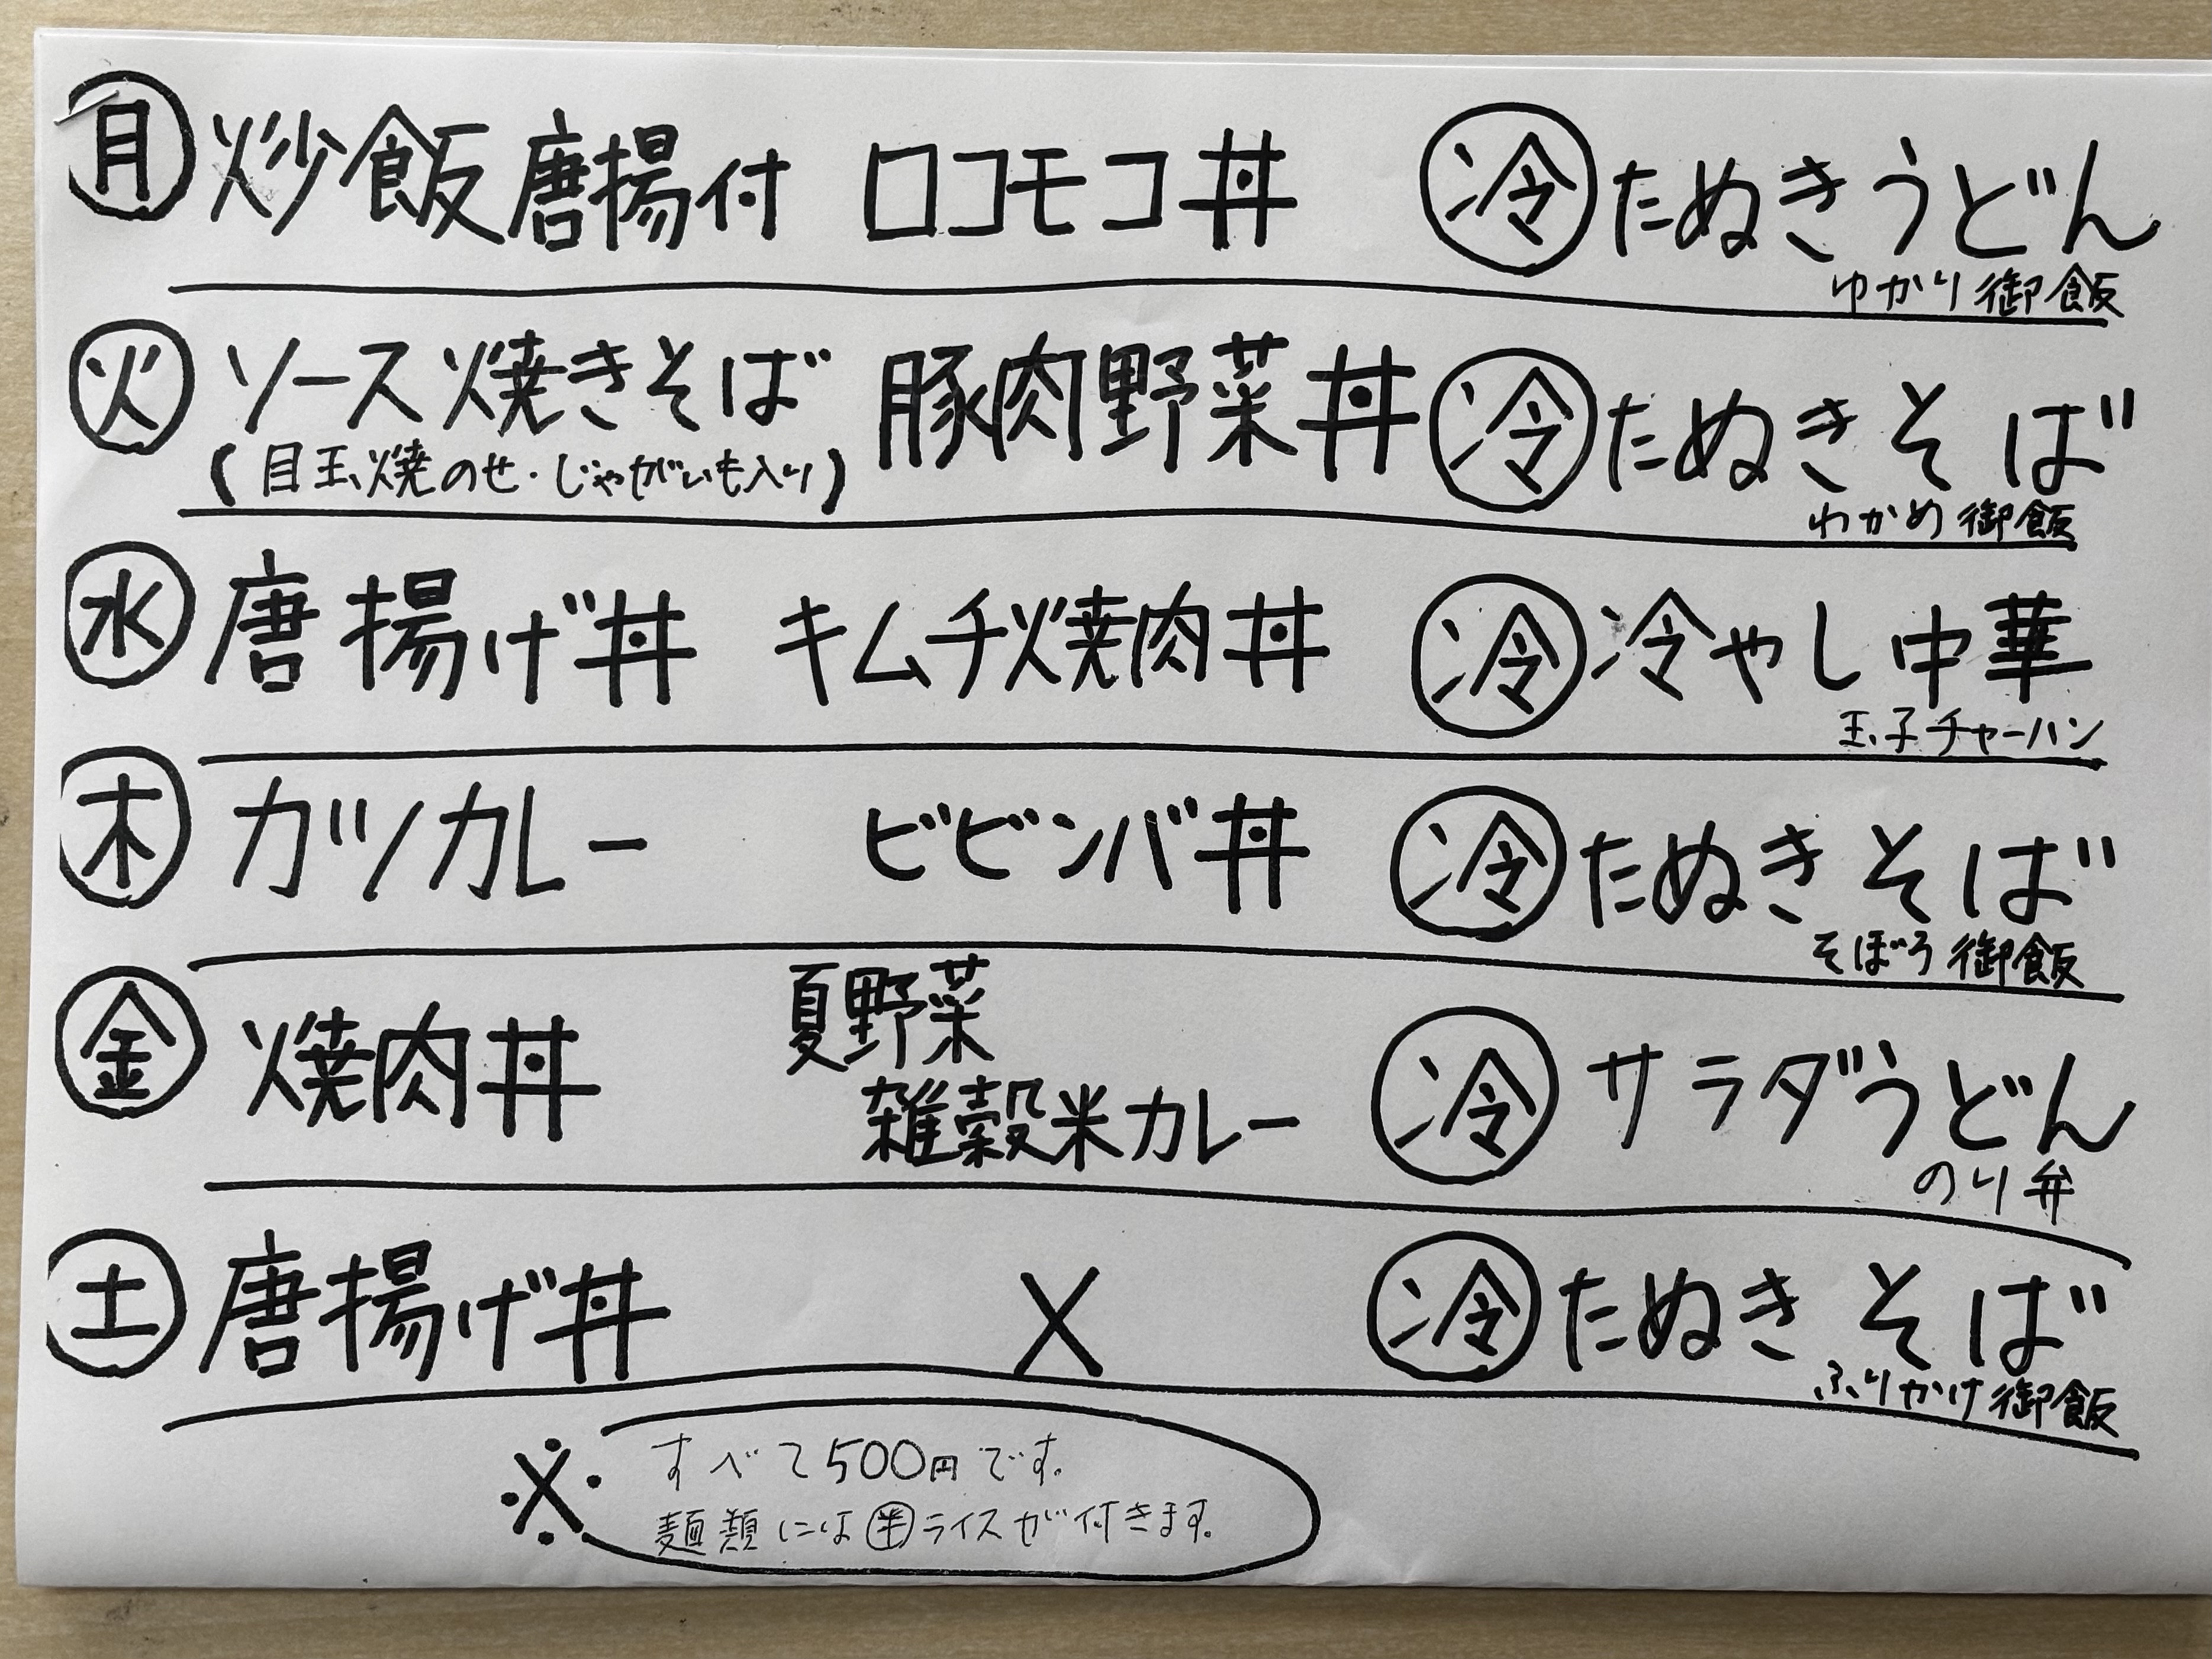 月 炒飯唐揚付 ロコモコ丼 冷 たぬきうどん
ゆかり御飯
火 ソース焼きそば 豚肉野菜丼 冷 たぬきそば
(目玉焼のせ・じゃがいも入り)
わかめ御飯
水 唐揚げ丼 キムチ焼肉丼 冷 冷やし中華
玉子チャーハン
木 カツカレー ビビンバ丼 冷 たぬきそば
そぼろ御飯
夏野菜
金 焼肉丼 雑穀米カレー 冷 サラダうどん
のり弁
土 唐揚げ丼 X 冷 たぬきそば
ふりかけ御飯
※ すべて500円です。
麺類には半ライスが付きます。